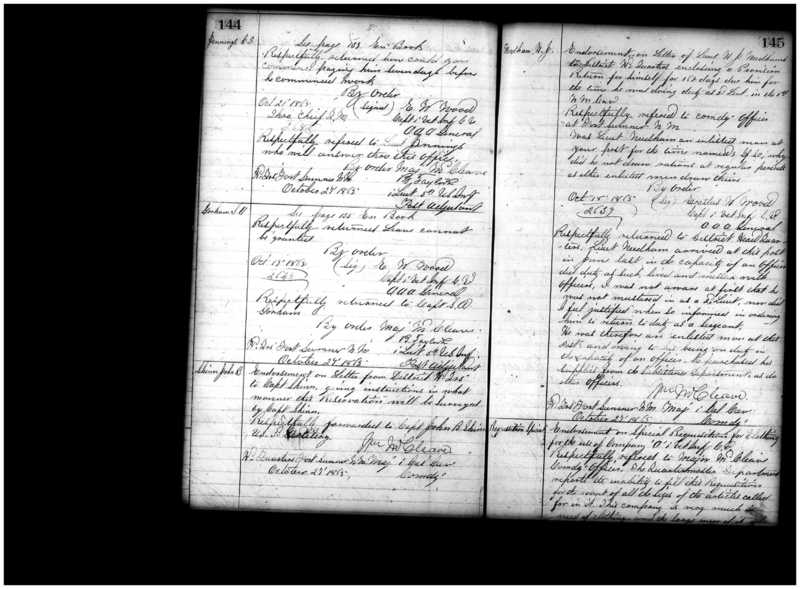 144
Jennings
See page 103 En Book
Respectfully returned how could you
commence before
he commenced work
By order
Oct 21st 1865 (Signed) E. W. Wood
Capt 1st Vet Inf C. V.
A A A General
Respectfully refered to Lieut Jennings
who will answer thro this office.
By order Maj McCleave
Hd Qrs Fort Sumner N M
October 27 1865
1 Lieut 5th US Inf
Post Adjutant
Gorham S A
See page 122 En Book
Respectfully returned Leave cannot
be granted
By order
Oct 18th 1865 (sig) E. W. Wood
Capt 1st Vet Inf C. V.
A A A General
Respectfully returned to Capt S. A.
Gorham
By order Maj McCleave
Hd Qrs Fort Sumner N M
1 Lieut 5th US Inf
October 27 1865
Post Adjutant
Shinn John B
Endorsement on Letter from District Hd Qrs
to Capt Shinn, giving instructions in what
manner this Reservation will be surveyed
by Capt Shinn.
Respectfully forwarded to Capt John B Shinn
U.S. Artillery
Wm McCleave
Hd Quarters Fort Sumner N M Maj 1 Cal Cav
October 27 1865
Comdg
145
Needham, N. J.
Endorsement on Letter of Lieut N J Needham
to District Hd Quarters enclosing a
Return for himself for days due him for
the time he was doing duty as 2 Lieut. in the 1st
N M Cav
Respectfully refered to comdg Officer
at Fort Sumner N. M.
Was Lieut. Needham an enlisted man at
your post for the time named. If so, why
did he not draw rations at regular periods
as other enlisted men draw theirs
By Order
(Sig) W Wood
Oct 18th 1865
Capt 1st Vet Inf C. V.
A A A General
Respectfully returned to District Head Quar
ters. Lieut Needham arrived at this post
in June last in the capacity of an officer
did duty as such, lived and with
officers, I was not aware at first that he
was not mustered in as a 2 Lieut, nor did
I feel justified when so informed in ordering
him to return to duty as a Sergeant.
He was therefore an enlisted man at this
Post and owing to his being on duty in
the capacity of an officer. He purchased his
supplies from the Subsistence Department as do
other Officers.
Wm McCleave
Hd Qrs Fort Sumner N M Maj 1 Cal Cav
October 27 1865 Comdg
Requisition Special
Endorsement on Special Requisition for Clothing
for the use of Company 1st Vet Inf C. V.
Respectfully refered to Major McCleave
Comdg Officer. The Quartermaster Department
reports the inability to fill this Requisition
for the want of all the sizes of the articles called
for in it. This company is very much in